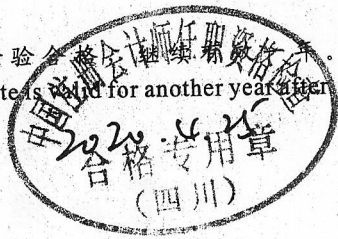 验合格，继续有效一年。
te is valid for another year after
中国注册会计师任职资格检查
2020.4.25
合格专用章
（四川）